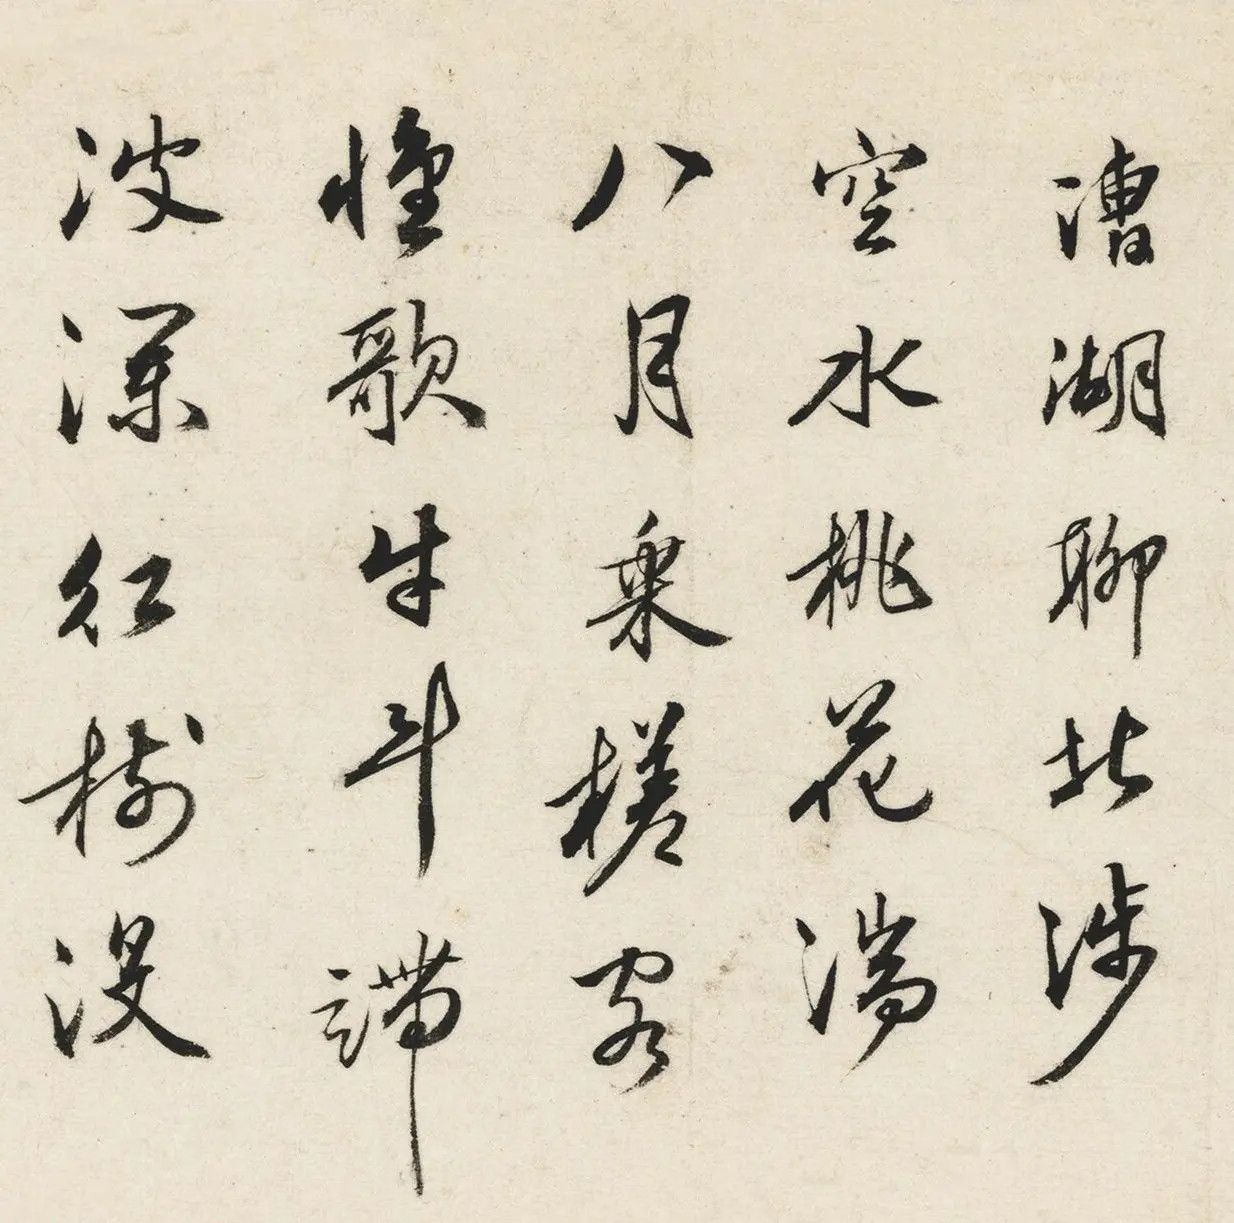 漕湖聊北涉
空水桃花湍
八月乘槎客
歌牛斗端
波深紅樹没